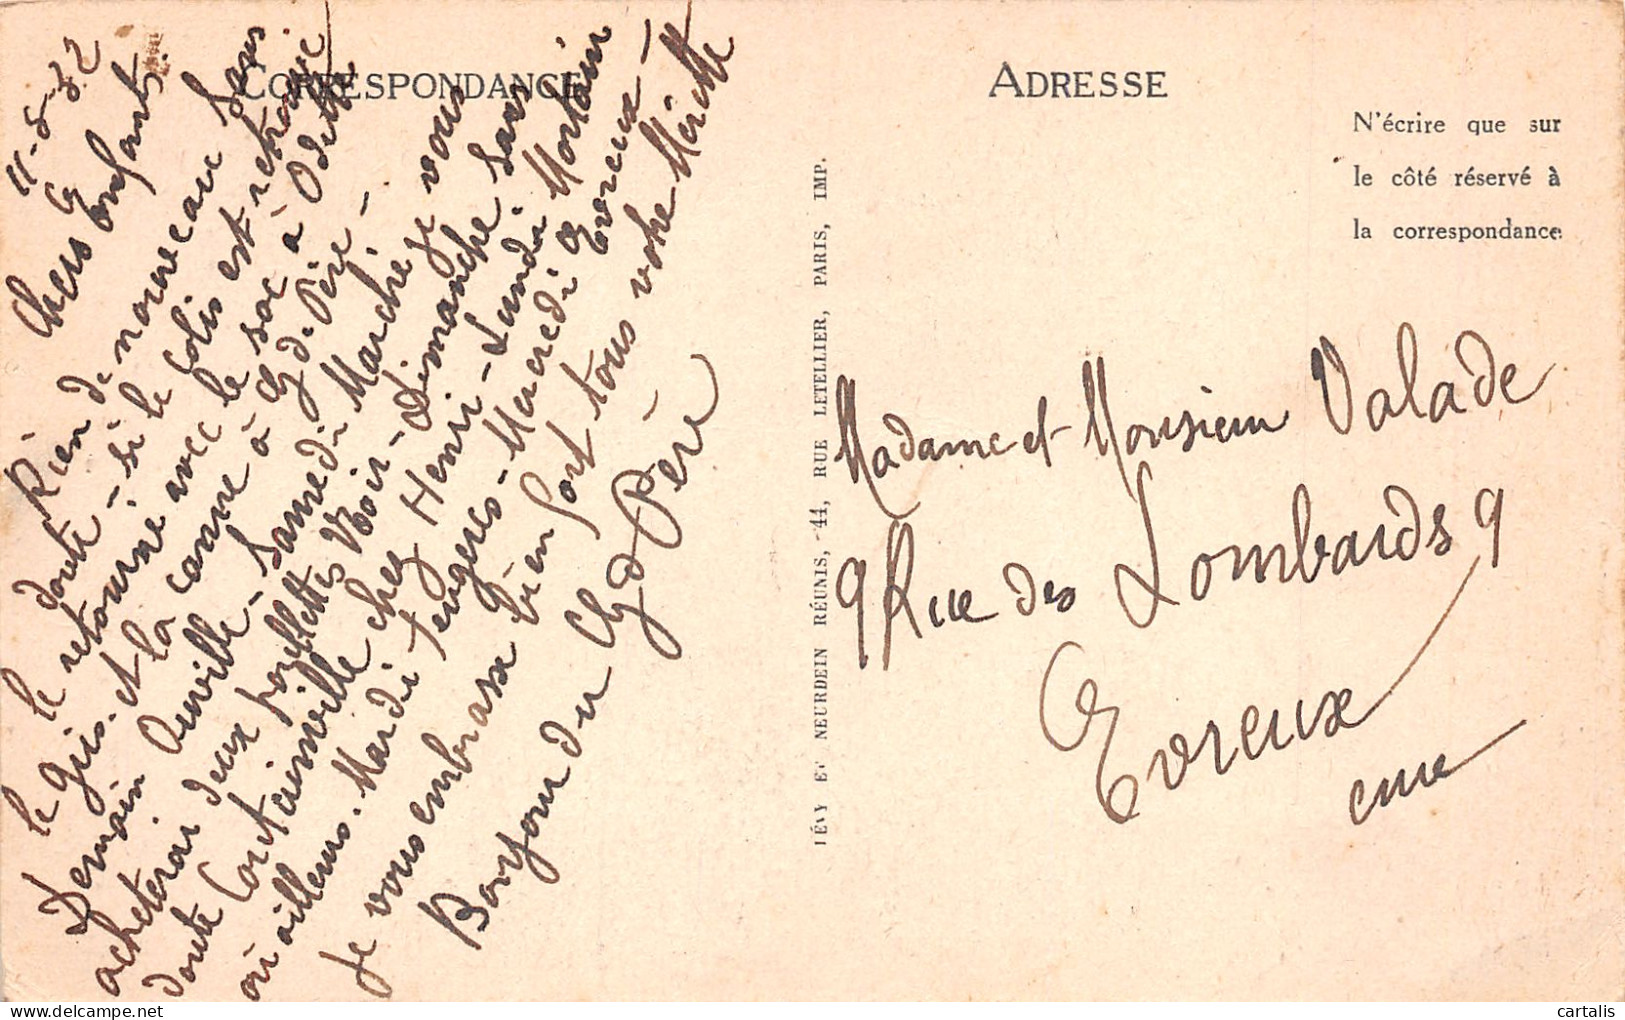 CORRESPONDANCE
11-8-32
Chers Enfants.
Rien de nouveau sans
doute - si le colis est retrouvé
le retourne avec le sac à Odette
le gris. et la canne à Gd. Père -
Demain Quville - Samedi Marché. je vous
achèterai deux poulettes Noir - Dimanche sans
doute Coutainville chez Henri - Lundi. Mortain
où ailleurs. Mardi Fougères - Mercredi Evreux -
Je vous embrasse bien fort tous votre Mérotte
Bonjour du Gd Père
LÉVY ET NEURDEIN RÉUNIS, 44, RUE LETELLIER, PARIS, IMP.
ADRESSE
N'écrire que sur
le côté réservé à
la correspondance
Madame et Monsieur Valade
9 Rue des Lombards 9
Evreux
eure
cartalis - delcampe.net